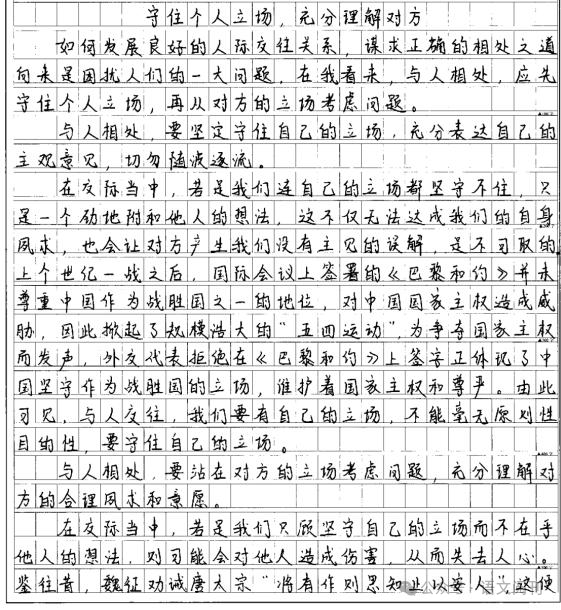 守住个人立场，充分理解对方
如何发展良好的人际交往关系，谋求正确的相处之道
向来是困扰人们的一大问题，在我看来，与人相处，应先
守住个人立场，再从对方的立场考虑问题。
与人相处，要坚定守住自己的立场，充分表达自己的
主观意见，切勿随波逐流。
在交际当中，若是我们连自己的立场都坚守不住，只
是一个劲地附和他人的想法，这不仅无法达成我们的自身
夙求，也会让对方产生我们没有主见的误解，是不可取的
上个世纪一战之后，国际会议上签署的《巴黎和约》并未
尊重中国作为战胜国之一的地位，对中国国家主权造成威
胁，因此掀起了规模浩大的“五四运动”，为争夺国家主权
而发声，外交代表拒绝在《巴黎和约》上签字正体现了中
国坚守作为战胜国的立场，维护着国家主权和尊严。由此
可见，与人交往，我们要有自己的立场，不能毫无原则性
目的性，要守住自己的立场。
与人相处，要站在对方的立场考虑问题，充分理解对
方的合理夙求和意愿。
在交际当中，若是我们只顾坚守自己的立场而不在乎
他人的想法，则可能会对他人造成伤害，从而失去人心。
鉴往昔，魏征劝诫唐太宗“将有作则思知止以安人”这便
公众号·语文周刊